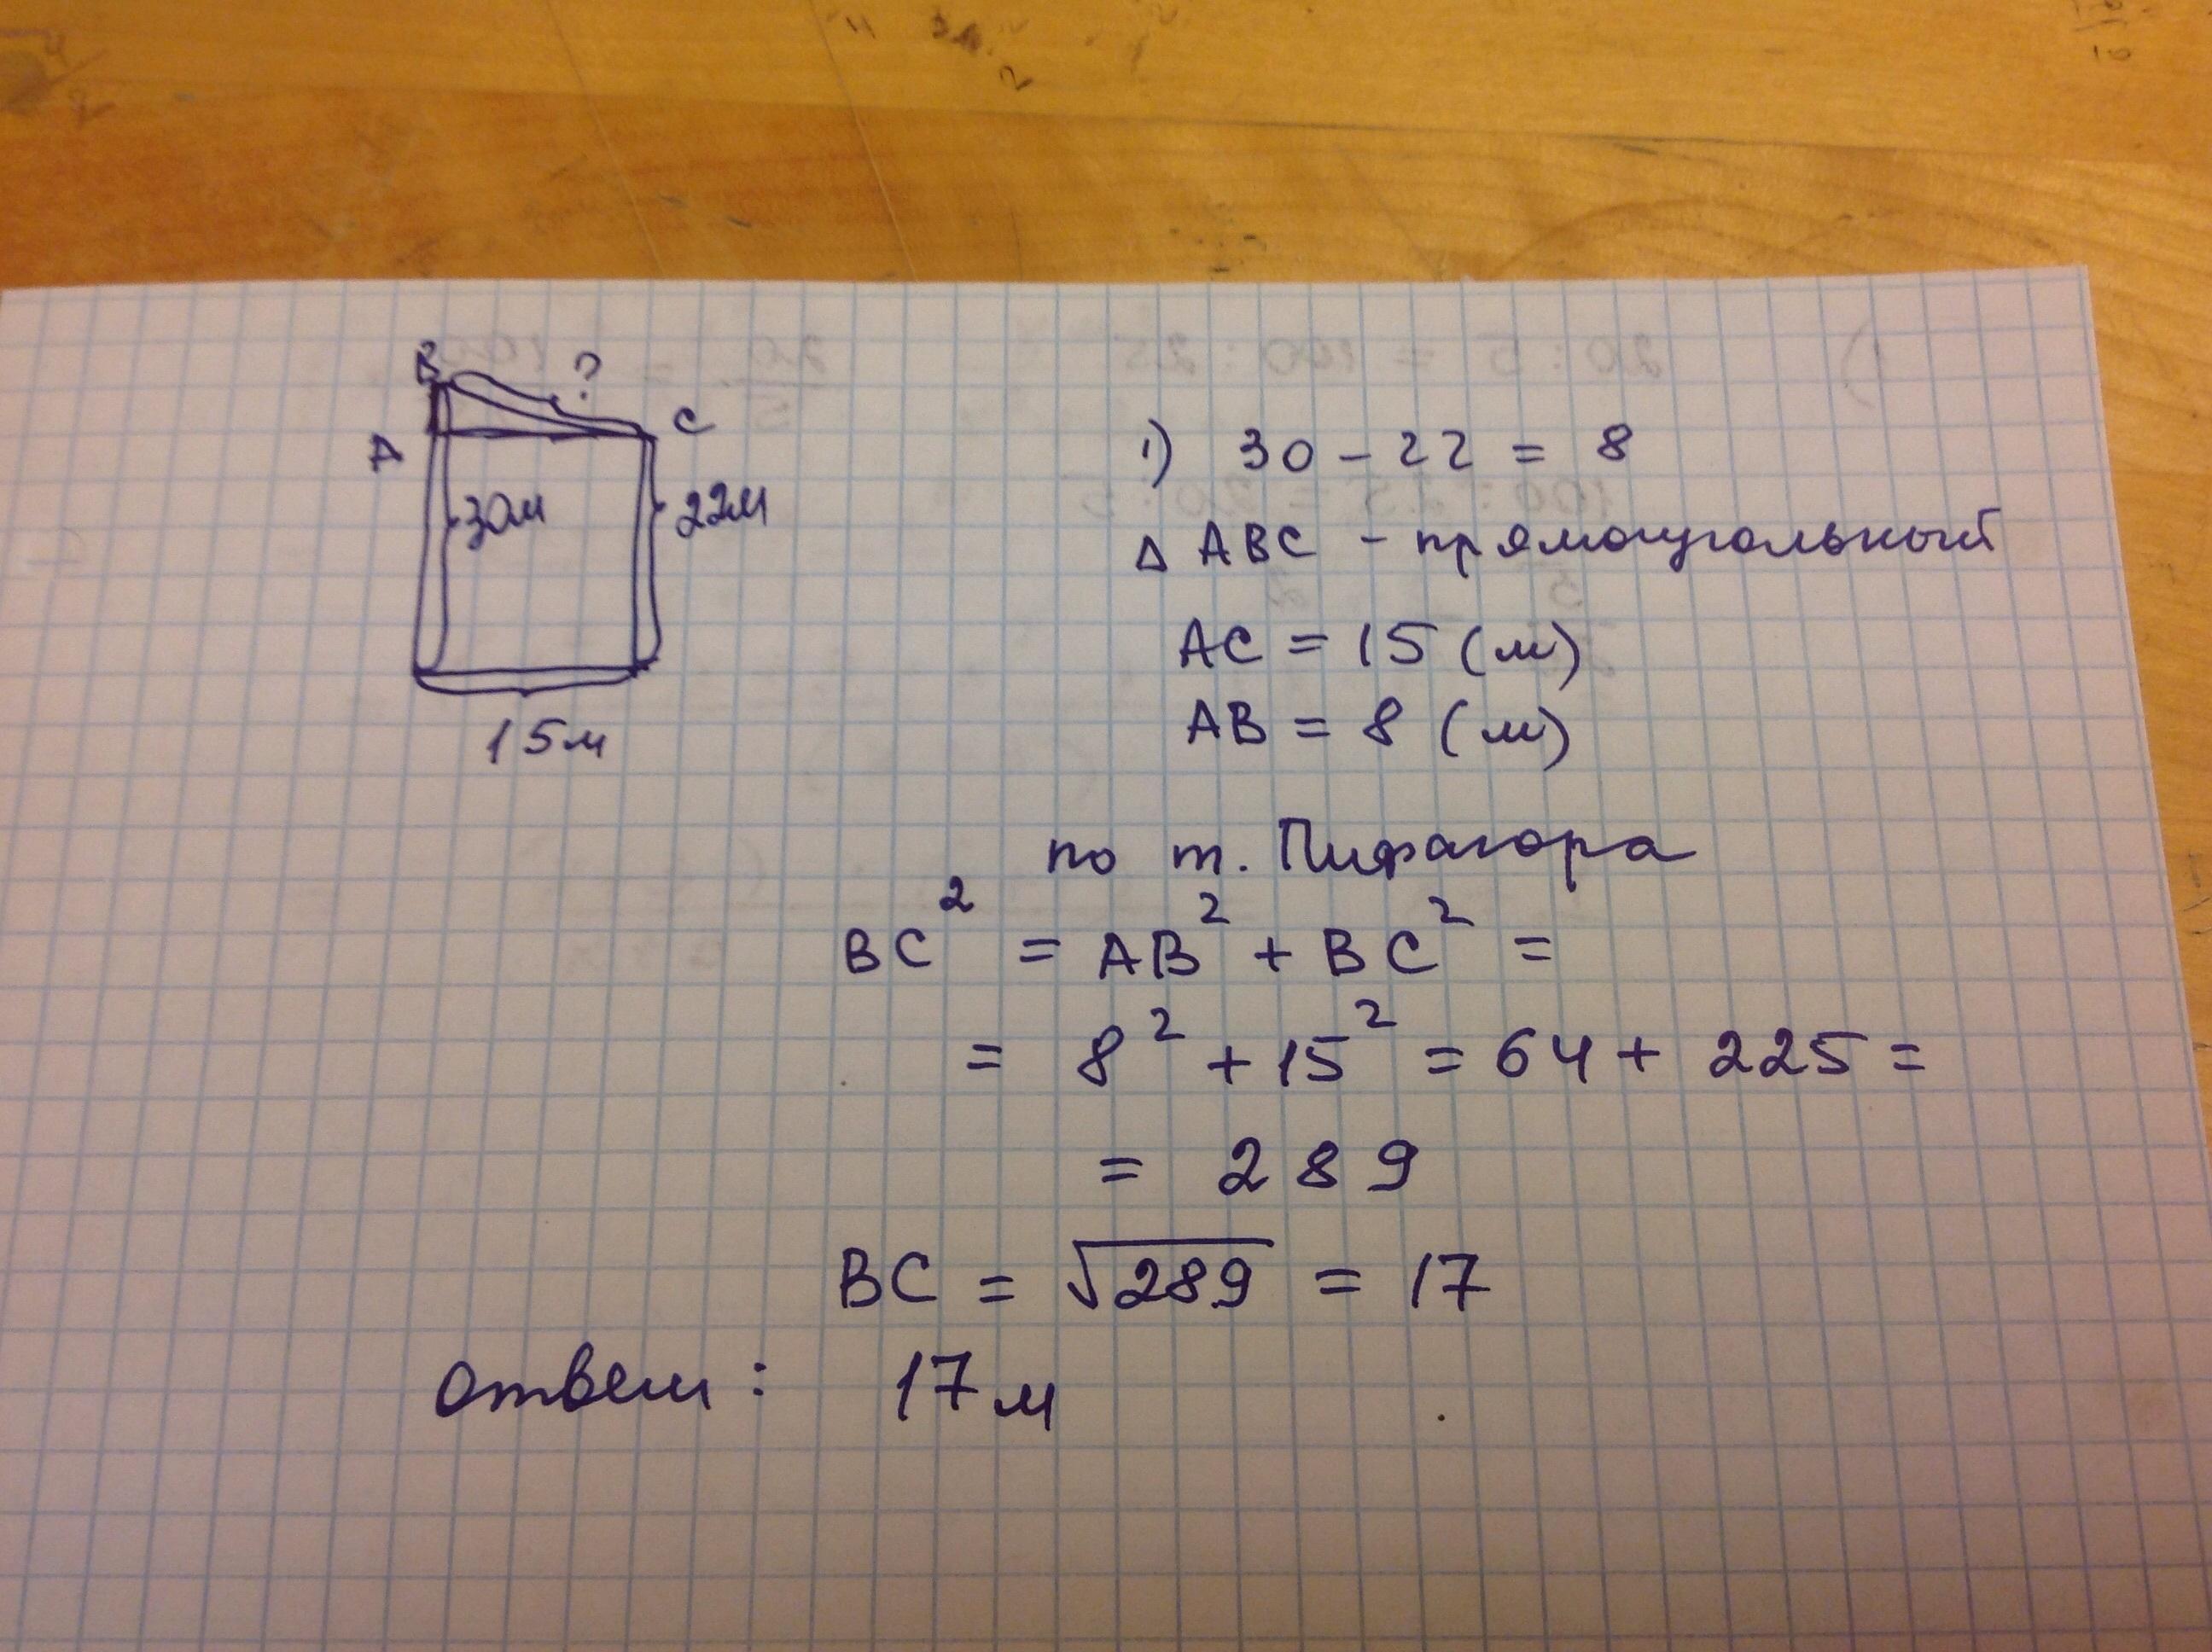 B
?
C
A
30м
22м
15м
1) 30 - 22 = 8
Δ ABC - прямоугольный
AC = 15 (м)
AB = 8 (м)
по т. Пифагора
BC² = AB² + BC² =
= 8² + 15² = 64 + 225 =
= 289
BC = √289 = 17
ответ: 17 м